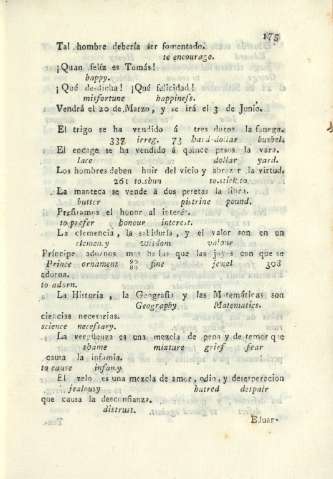 175
Tal hombre debería ser fomentado.
to encourage.
¡Quan feliz es Tomás!
happy.
¡Qué desdicha! ¡Qué felicidad!
misfortune happiness.
Vendrá el 20 de Marzo, y se irá el 3 de Junio.
El trigo se ha vendido á tres duros la fanega.
337 irreg. 73 hard-dollar bushel.
El encage se ha vendido á quince pesos la vara.
lace dollar yard.
Los hombres deben huir del vicio y abrazar la virtud.
261 to shun to stick to.
La manteca se vende á dos pesetas la libra.
butter pistrine pound.
Prefiramos el honor al interés.
to prefer honour interest.
La clemencia, la sabiduría, y el valor son en un
clemency wisdom valour
Príncipe adornos mas bellos que las joyas con que se
Prince ornament fine jewel 308
adorna.
to adorn.
La Historia, la Geografía y las Matemáticas son
Geography Matematics.
ciencias necesarias.
science necessary.
La vergüenza es una mezcla de pena y de temor que
shame mixture grief fear
causa la infamia.
to cause infamy.
El zelo es una mezcla de amor, odio, y desesperacion
jealousy hatred despair
que causa la desconfianza.
distrust.